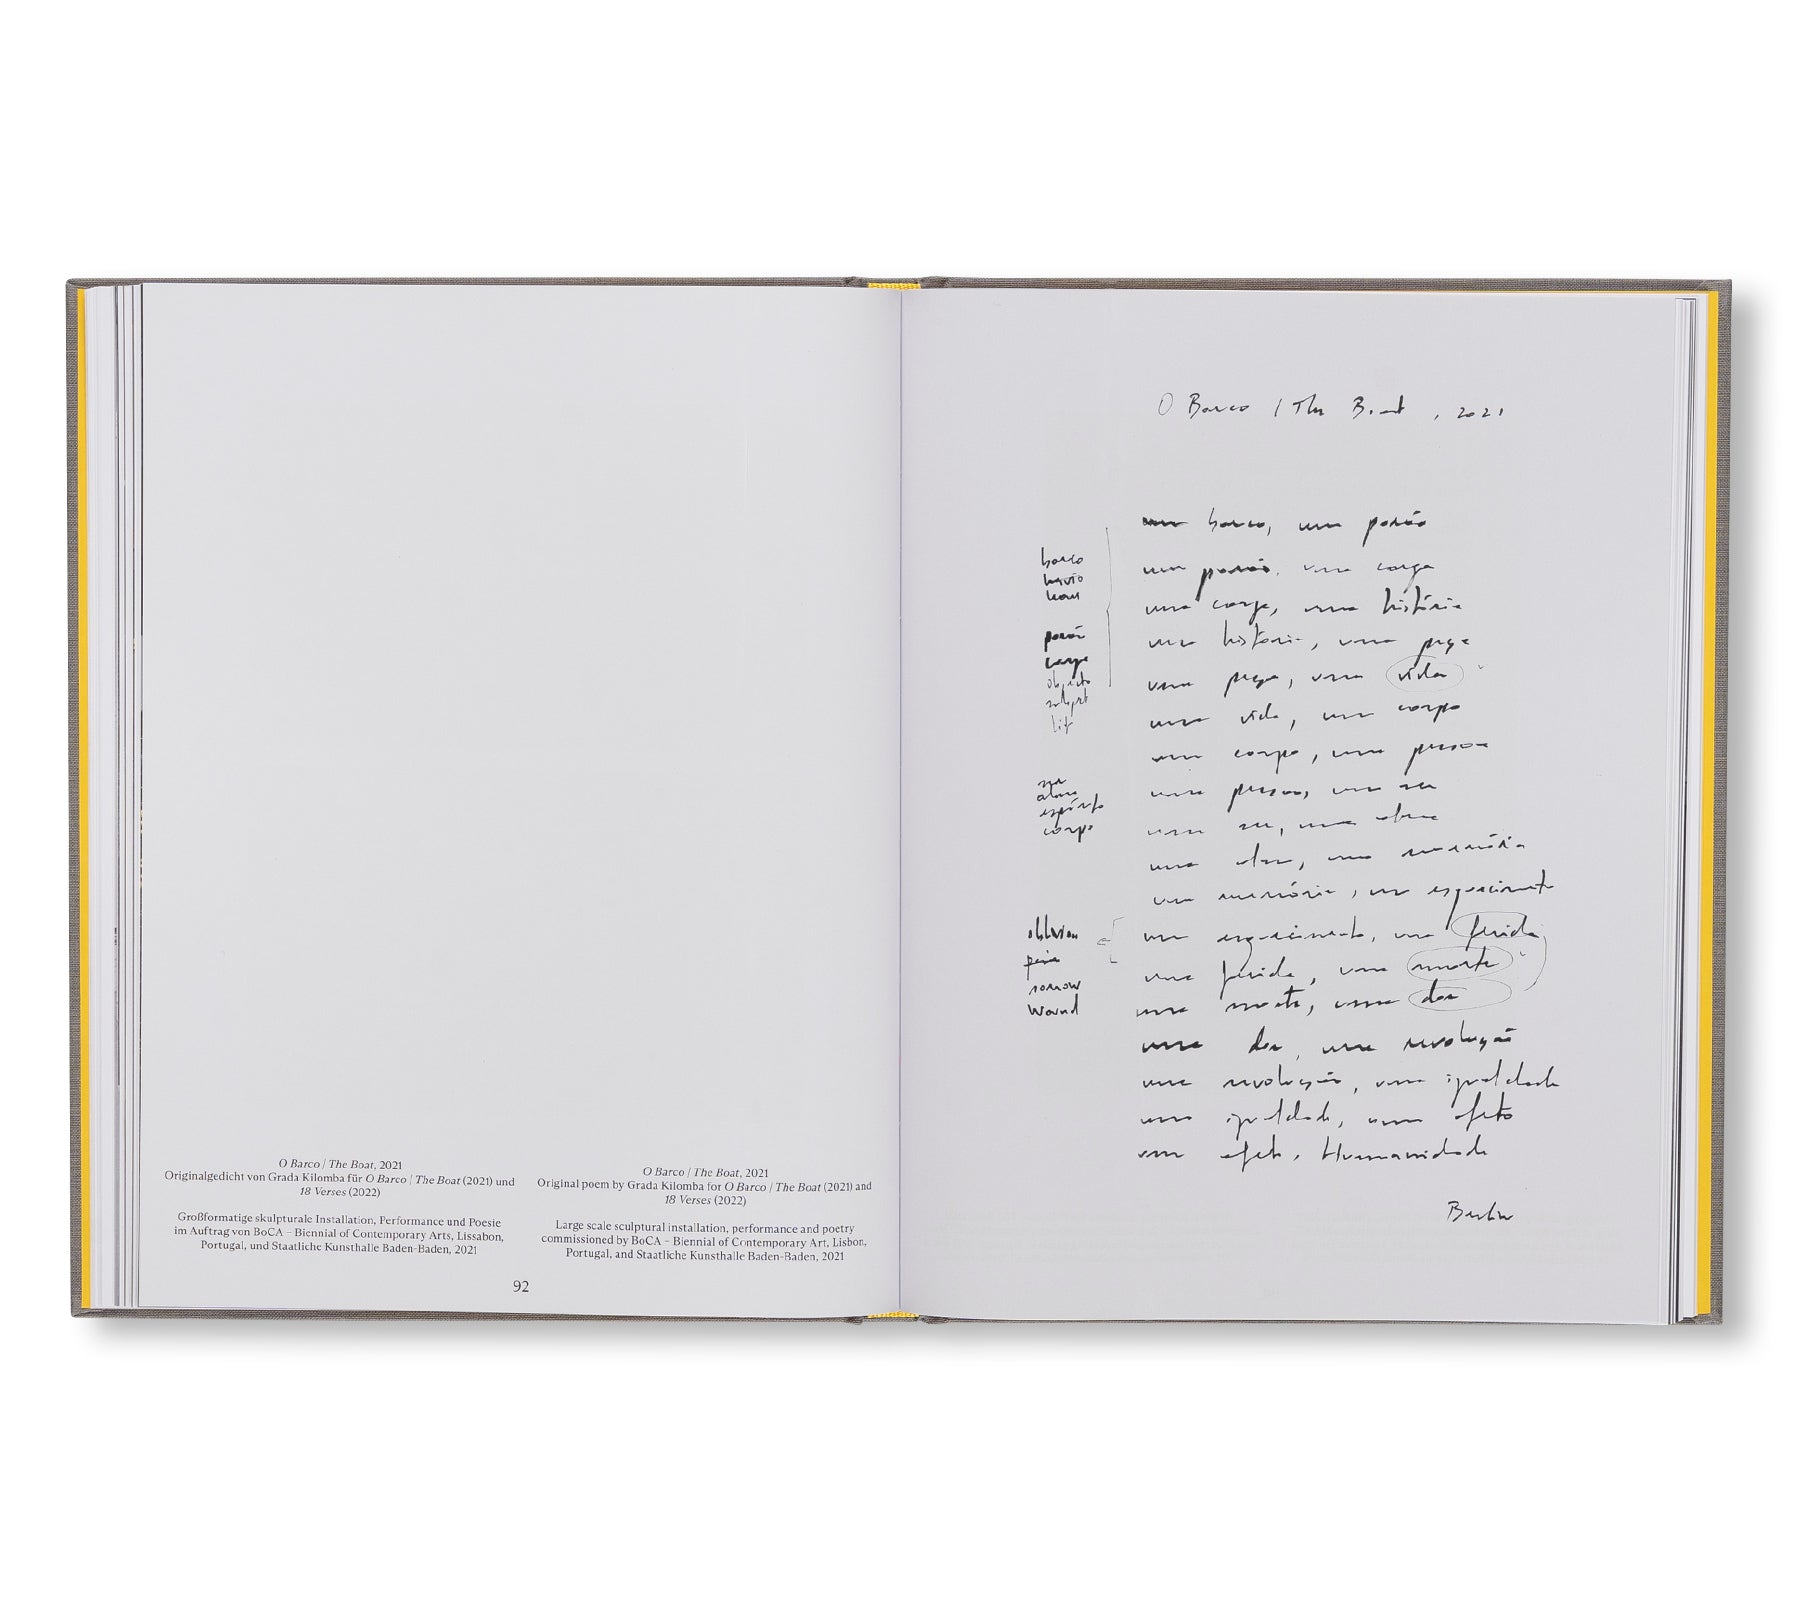 O Barco | The Boat, 2021
Originalgedicht von Grada Kilomba für O Barco | The Boat (2021) und
18 Verses (2022)
Großformatige skulpturale Installation, Performance und Poesie
im Auftrag von BoCA – Biennial of Contemporary Arts, Lissabon,
Portugal, und Staatliche Kunsthalle Baden-Baden, 2021
O Barco | The Boat, 2021
Original poem by Grada Kilomba for O Barco | The Boat (2021) and
18 Verses (2022)
Large scale sculptural installation, performance and poetry
commissioned by BoCA – Biennial of Contemporary Art, Lisbon,
Portugal, and Staatliche Kunsthalle Baden-Baden, 2021
92
O Barco / The Boat, 2021
barco
porão
carga
objecto
alma
espírito
corpo
oblivion
sorrow
wound
um barco, um porão
um porão, uma carga
uma carga, uma história
uma história, uma peça
uma peça, uma vida
uma vida, um corpo
um corpo, uma pessoa
uma pessoa, um ser
um ser, uma alma
uma alma, uma memória
uma memória, um esquecimento
um esquecimento, uma ferida
uma ferida, uma morte
uma morte, uma dor
uma dor, uma revolução
uma revolução, uma igualdade
uma igualdade, um afeto
um afeto, Humanidade
Berlin